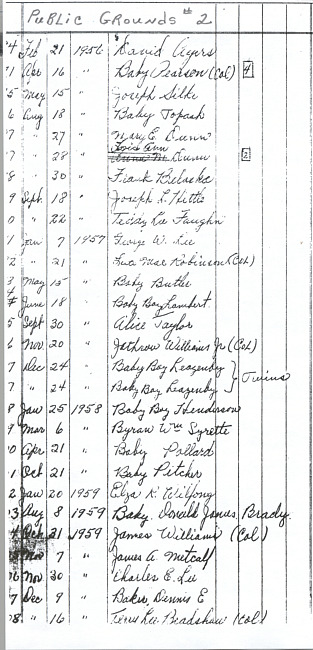 PUBLIC GROUNDS #2
4 Feb 21 1956 David Ayers
1 Apr 16 " Baby Pearson (Col) 4
5 May 15 " Joseph Silke
6 Aug 18 " Baby Topash
7 " 27 " Mary E. Dunn
7 " 28 " Dunn 2
8 " 30 " Frank Belaska
9 Sept. 18 " Joseph L. Hitts
0 " 22 " Teddy Lee Faughn
1 Jan 7 1957 George W. Lee
2 " 21 " Mae Robinson (Col)
3 May 15 " Baby Butke
4 June 18 " Baby Boy Lambert
5 Sept 30 " Alice Taylor
6 Nov. 20 " Jethrow Williams Jr (Col)
7 Dec 24 " Baby Boy Leazenby } Twins
7 " 24 " Baby Boy Leazenby
8 Jan 25 1958 Baby Boy Henderson
9 Mar 6 " Byran Wm Syrette
0 Apr 21 " Baby Pollard
1 Oct 21 " Baby Pitcher
2 Jan 20 1959 Elza K. Wilfong
3 Aug 8 1959 Baby, Donald James Brady.
4 Oct 21 1959 James Williams (Col)
Nov 7 " James A. Metcalf
6 Nov. 30 " Charles E. Lee
7 Dec 9 " Baker Dennis E
8. " 16 " Lee Bradshaw (Col)